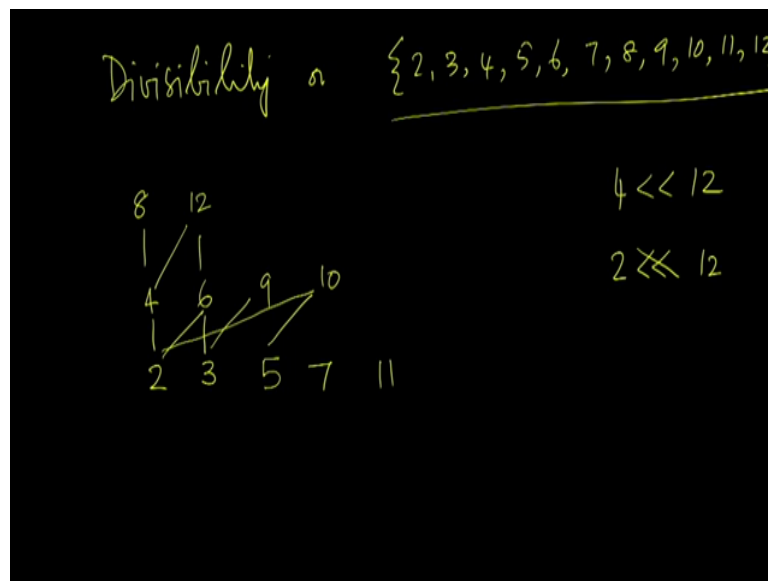 Divisibility on {2, 3, 4, 5, 6, 7, 8, 9, 10, 11, 12
8 12
4 << 12
2 << 12
4 6 9 10
2 3 5 7 11